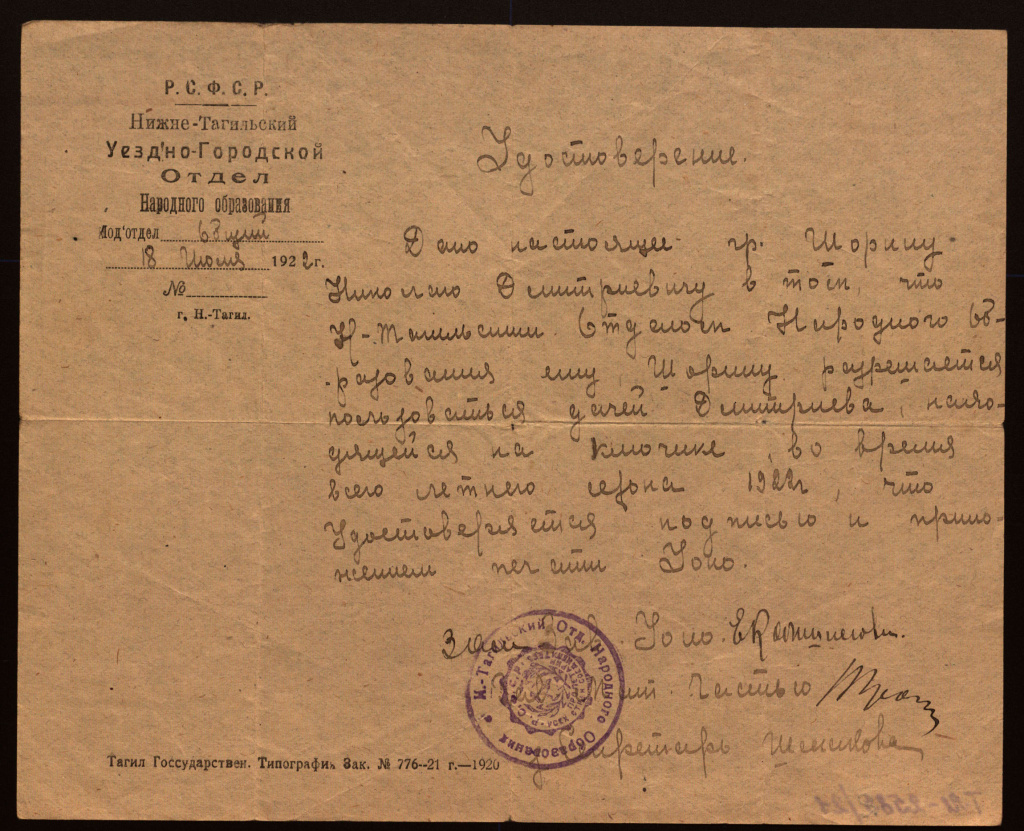 Р. С. Ф. С. Р.
Нижне-Тагильский
Уездно-Городской
Отдел
Народного образования
Под'отдел общий
18 Июля 1922 г.
№
г. Н.-Тагил.
Удостоверение.
Дано настоящее гр. Шорину
Николаю Дмитриевичу в том, что
Н-Тагильским Отделом Народного Об-
разования ему, Шорину разрешается
пользоваться дачей Дмитриева, нахо-
дящейся на ключике, во время
всего летнего сезона 1922г, что
Удостоверяется подписью и прило-
жением печати Уоно.
Зам Уоно.
Частью
Секретарь
Н.-Тагильский Отд. Народного Образования
Р. С. Ф. С. Р.
Тагил Государствен. Типография Зак. № 776--21 г.—1920